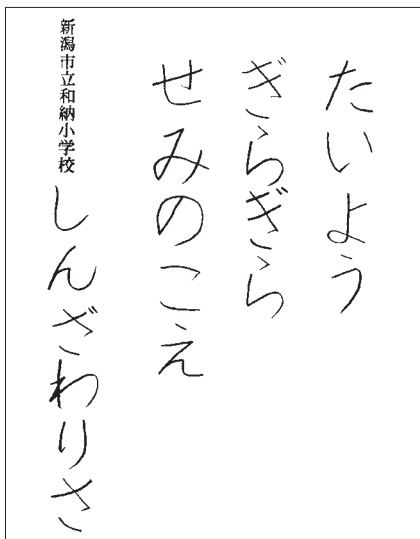 たいよう
ぎらぎら
せみのこえ
新潟市立和納小学校
しんざわりさ